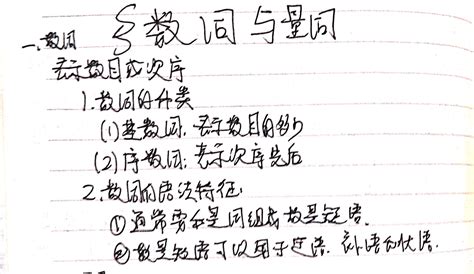 § 数词与量词
一、数词
表示数目或次序
1.数词的分类
(1)基数词:表示数目的多少
(2)序数词:表示次序先后
2.数词的语法特征:
①通常要和量词组成数量短语.
②数量短语可以用于定语、补语和状语.